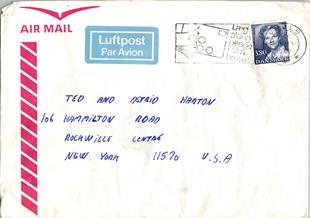 AIR MAIL
Luftpost
Par Avion
Læg
aldrig
penge
i
brevet
380
DANMARK
TED AND ASTRID HARTON
106 HAMILTON ROAD
ROCKVILLE CENTRE
NEW YORK 11570 U.S.A